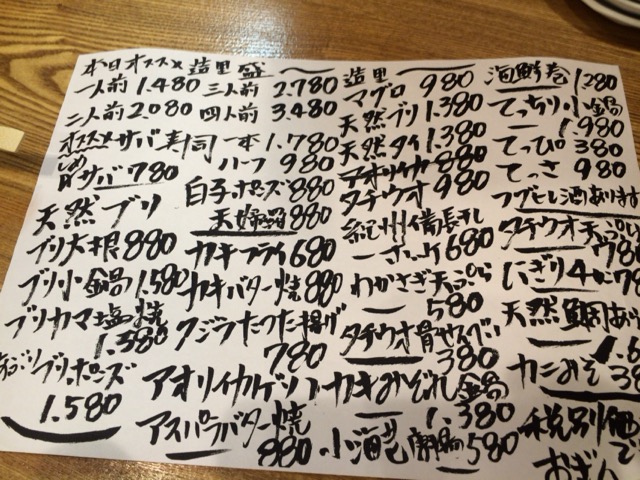 本日オススメ 造里盛
一人前 1.480 三人前 2.780
二人前 2.080 四人前 3.480
オススメ サバ寿司 一本 1.780
ハーフ 980
しめサバ 780
白子ポンズ 880
天婦羅 880
天然ブリ
ブリ大根 880
ブリ小鍋 1.580
ブリカマ塩焼
1.380
ブリポンズ
1.580
カキフライ 680
カキバター焼 880
クジラたつた揚げ
780
アオリイカゲソ
アスパラバター焼
880
造里
マグロ 980
天然ブリ 1.380
天然タイ 1.380
アオリイカ 880
タチウオ 980
紀州備長干し
680
わかさぎ天ぷら
580
タチウオ骨せんべい
380
カキみぞれ小鍋
1.380
小海老 580
海鮮巻 1.280
てっちり小鍋
1.980
てっぴ 380
てっさ 980
フグヒレ酒あります
タチウオ天ぷら
780
にぎり4コ 78
天然鯛あり
カニみそ 38
税別価